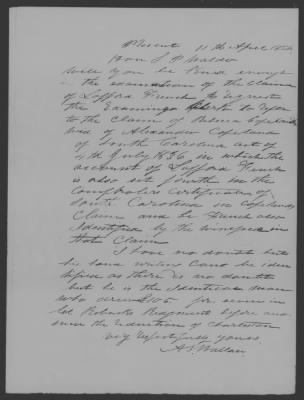 11th April 185
Hon L P Waldo
Will you be kind enough
in the examination of the Claim
of Safford French to request
the Examining Clerk to refer
to the Claim of Rebeca Copeland
Wid of Alexander Copeland
of South Carolina act of
4th July 1836 in which the
account of Safford French
is also set fourth in the
Comptrolers Certificate of
South Carolina in Copelands
Claim and he French also
Identified by the witnesses in
that Claim
I have no doubt but
he
as there is no doubt
but he is the Identical man
who for services in
Col Robucks Regiment before and
since the reduction of Charleston
very respectfully yours,
A. Wallace